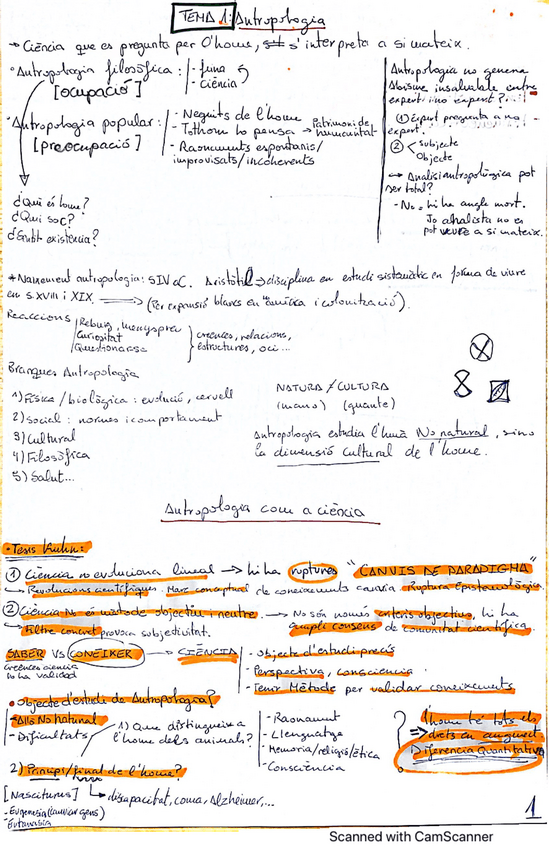 TEMA 1: Antropologia
→ Ciència que es pregunta per l'home, s'interpreta a si mateix.
• Antropologia filosòfica: - funa
- ciència
[ocupació]
• Antropologia popular: - Neguits de l'home
- Tothom ho pensa → Patrimoni de humanitat
- Raonaments espontanis/
improvisats/incoherents
[preocupació]
¿Qui és home?
¿Qui soc?
¿Sentit existència?
Antropologia no genera
Abisme insalvable entre
expert i no expert?
① Expert pregunta a no
expert.
② Subjecte
Objecte
→ Anàlisi antropològica pot
ser total?
- No = hi ha angle mort.
Jo analista no es
pot veure a si mateix.
* Naixement antropologia: S IV aC. Aristòtil → disciplina en estudi sistemàtic en forma de viure
en s. XVIII i XIX. → (Per expansió blancs en "amèrica i colonització).
Reaccions Rebuig, menyspreu
Curiositat
Qüestionarse
creences, relacions,
estructures, oci...
Branques Antropologia
1) Física / biològica: evolució, cervell
2) Social: normes i comportament
3) Cultural
4) Filosòfica
5) Salut...
NATURA ≠ CULTURA
(mano) (guante)
Antropologia estudia l'humà No natural, sino
la dimensió cultural de l'home.
Antropologia com a ciència
• Tesis Kuhn:
① Ciència no evoluciona lineal → hi ha ruptures "CANVIS DE PARADIGMA"
→ Revolucions científiques. Marc conceptual de coneixements canvia Ruptura Epistemològica.
② Ciència No és mètode objectiu i neutre. → No són només criteris objectius, hi ha
→ Filtre concret provoca subjectivitat. ampli consens de comunitat científica
SABER VS CONEIXER → CIÈNCIA
Creences ciencia
no ha validad
- Objecte d'estudi precís
- Perspectiva, consciència
- Tenir Mètode per validar coneixements
• Objecte d'estudi de Antropologia?
- Allò No natural
- Dificultats
1) Que distingueix a
l'home dels animals?
- Raonament
- Llenguatge
- Memoria/religió/ètica
- Consciència
? ⇒ l'home té tots els
drets en augment
Diferencia Quantitativa
2) Principi/final de l'home?
[Nasciturus] → discapacitat, coma, Alzheimer,...
- Eugenesia (canviar gens)
- Eutanasia
1
Scanned with CamScanner